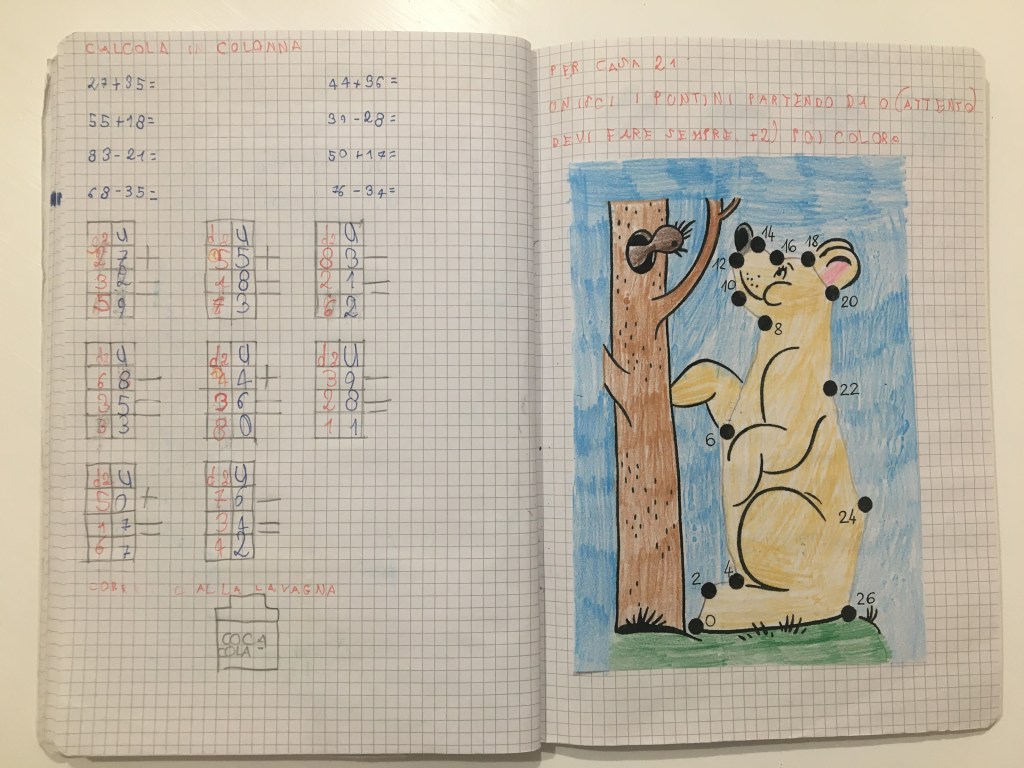 CALCOLA COLONNA
27+35= 44+36=
55+18= 39-28=
83-21= 50+17=
68-35= 76-34=
da u da u da u
2 7 + 5 5 + 8 3 -
3 2 = 1 8 = 2 1 =
5 9 7 3 6 2
da u da u da u
6 8 - 4 4 + 3 9 -
3 5 = 3 6 = 2 8 =
3 3 8 0 1 1
da u da u
5 0 + 7 6 -
1 7 = 3 4 =
6 7 4 2
ALLA LAVAGNA
COCA
COLA
PER CASA 21
UNISCI I PUNTINI PARTENDO DA 0 (ATTENTO
DEVI FARE SEMPRE +2) POI COLORA
14
12 16 18
10 20
8
22
6
24
2 4
0 26